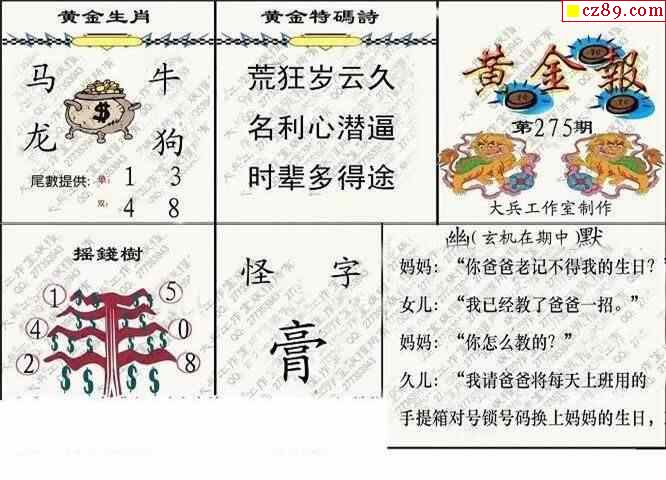 cz89.com
黄金生肖
马 牛
龙 狗
尾數提供: 单: 1 3
双: 4 8
黄金特碼詩
荒狂岁云久
名利心潜逼
时辈多得途
黄金報
第275期
大兵工作室制作
摇錢樹
1 5
4 0
2 8
怪 字
膏
幽(玄机在期中)默
妈妈：“你爸爸老记不得我的生日？”
女儿：“我已经教了爸爸一招。”
妈妈：“你怎么教的？”
久儿：“我请爸爸将每天上班用的
手提箱对号锁号码换上妈妈的生日，